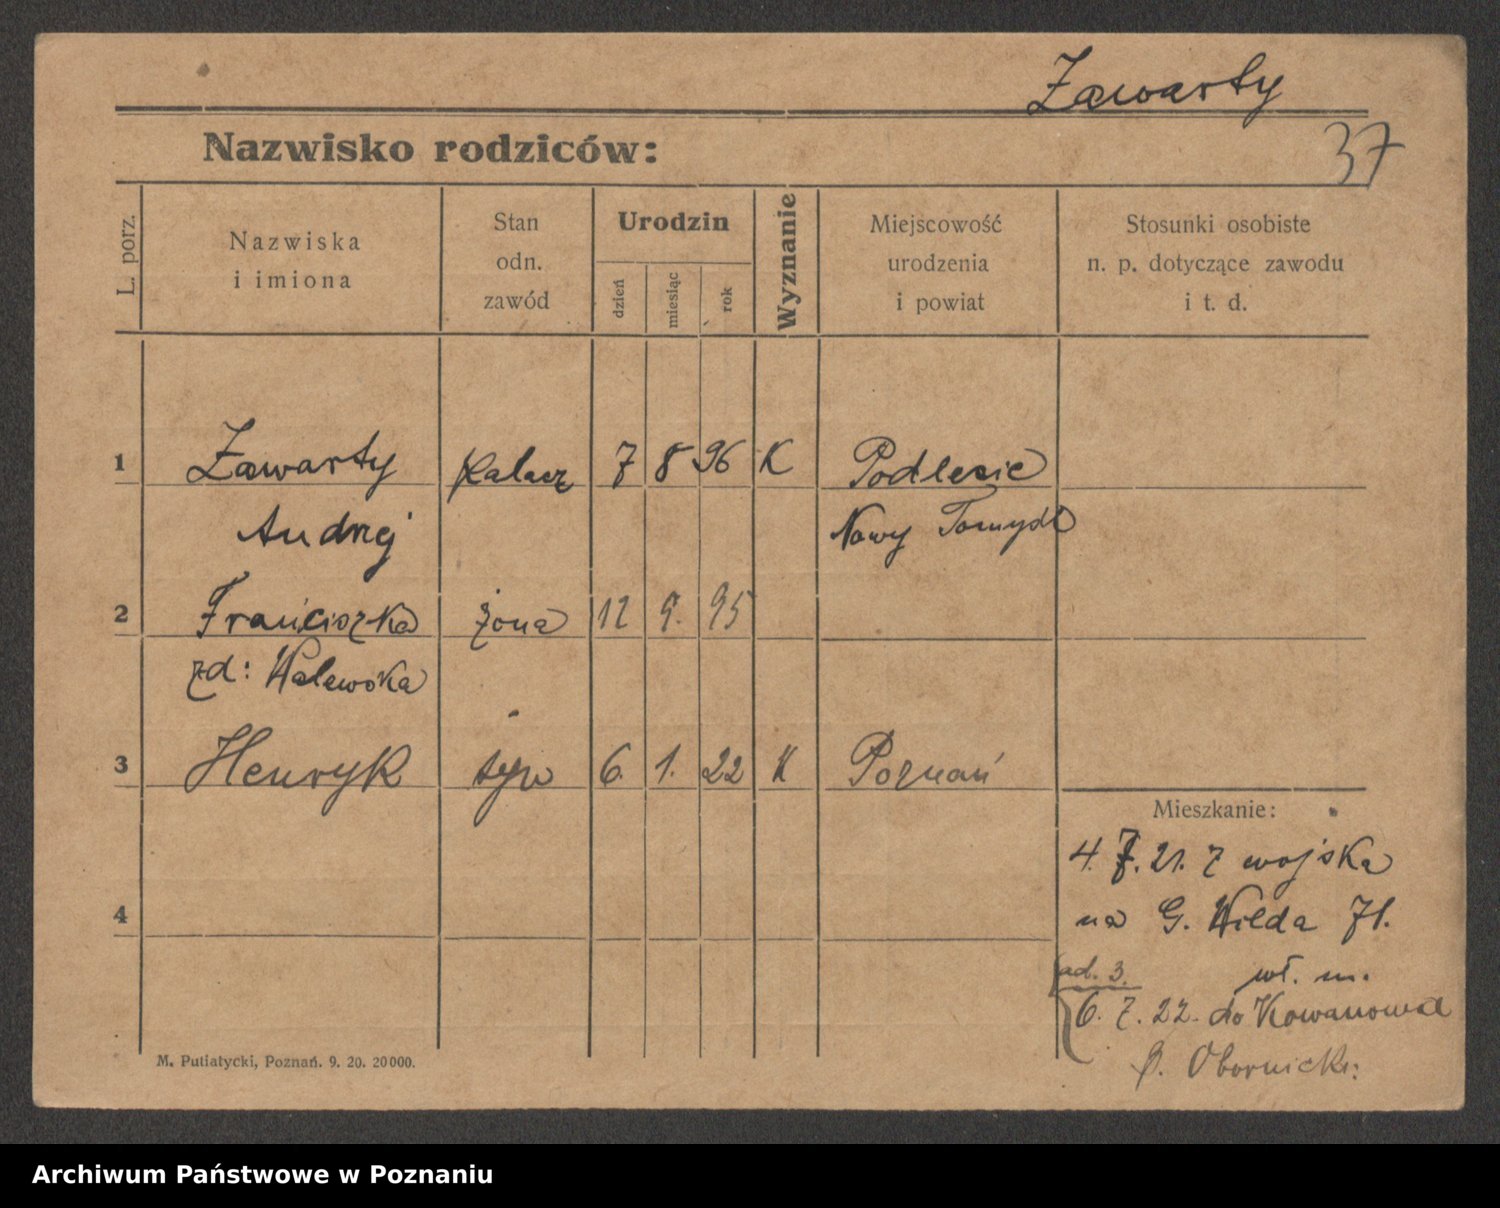 Zawarty
37
Nazwisko rodziców:
L. porz.
Nazwiska
i imiona
Stan
odn.
zawód
Urodzin
dzień
miesiąc
rok
Wyznanie
Miejscowość
urodzenia
i powiat
Stosunki osobiste
n. p. dotyczące zawodu
i t. d.
1 Zawarty 7 8 96 K Podlesie
Andrzej Nowy Tomyśl
2 Franciszka żona 12 9. 95
zd: Walewska
3 Henryk syn 6. 1. 22 K Poznań
Mieszkanie:
4. 7. 21. z wojska
4
na G. Wilda 71.
ad. 3. wł. m.
6. 7. 22. do Kowanowa
p. Obornicki
M. Putiatycki, Poznań. 9. 20. 20000.
Archiwum Państwowe w Poznaniu